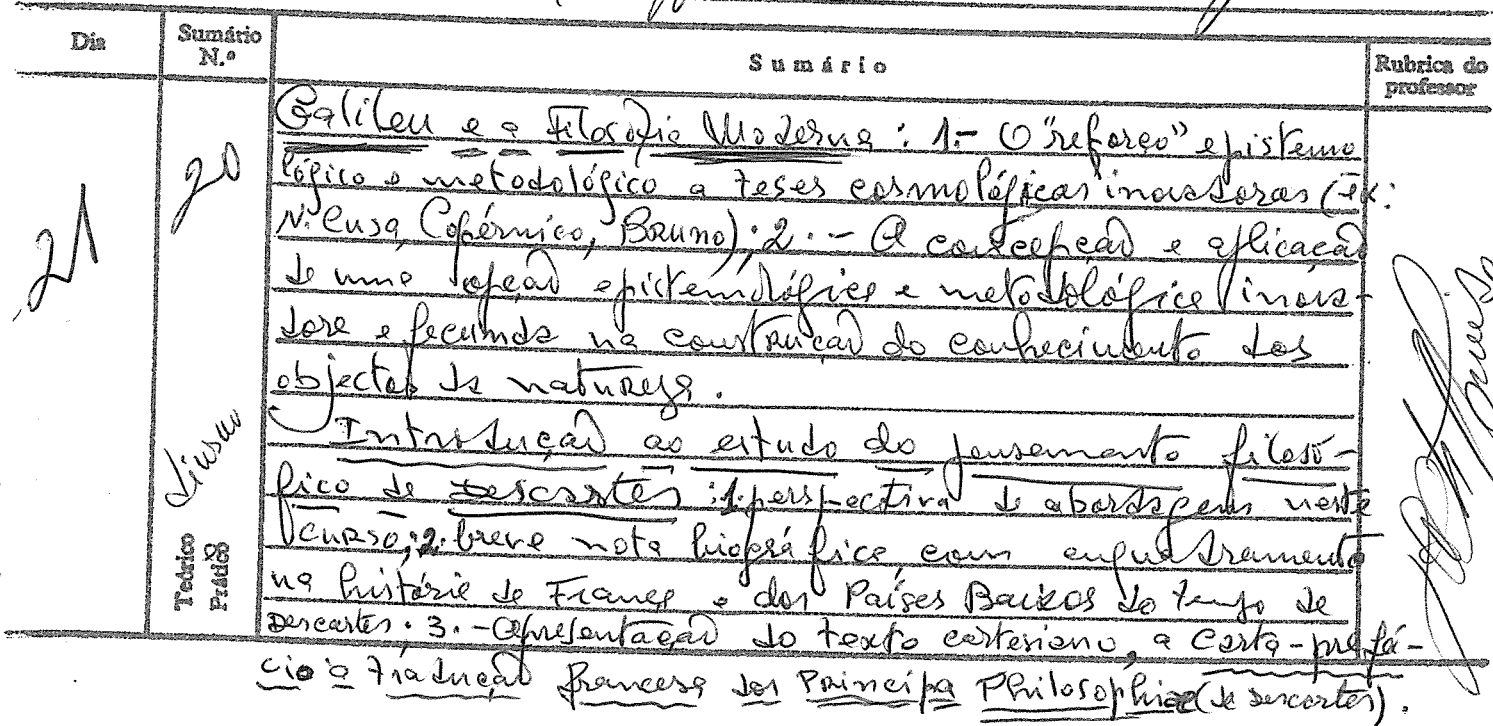 Dia
Sumário N.º
Sumário
Rubrica do professor
21
20
Teórico
Prático
Galileu e a Filosofia Moderna : 1.- O "reforço" epistemo
lógico e metodológico a teses cosmológicas inovadoras (ex:
N. Cusa, Copérnico, Bruno); 2.- A concepção e aplicação
de uma opção epistemológica e metodológica inova-
dora e fecunda na construção do conhecimento dos
objectos da natureza.
Introdução ao estudo do pensamento filosó-
fico de Descartes : 1. perspectiva de abordagem neste
curso; 2. breve nota biográfica, com enquadramento
na história de França e dos Países Baixos do tempo de
Descartes. 3.- Apresentação do texto cartesiano, a Carta-prefá-
cio à tradução francesa dos Principa Philosophiae (de Descartes).